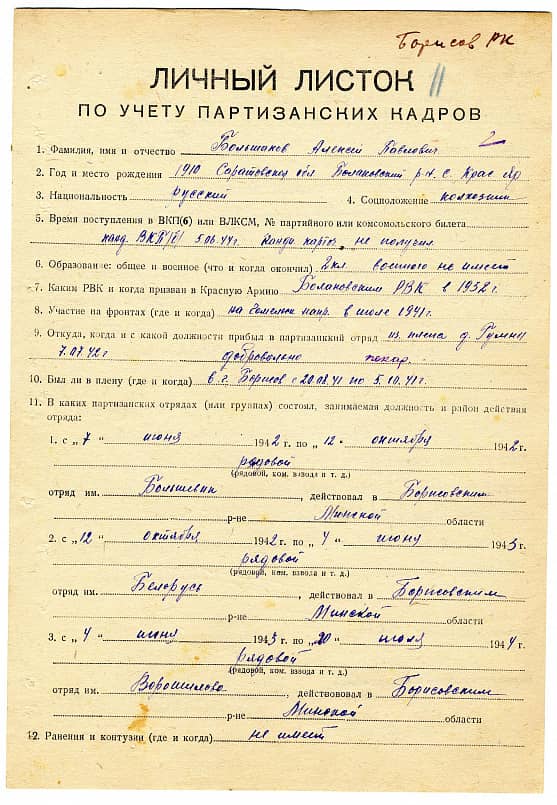 Борисов РК
ЛИЧНЫЙ ЛИСТОК 11
ПО УЧЕТУ ПАРТИЗАНСКИХ КАДРОВ
1. Фамилия, имя и отчество Большаков Алексей Павлович
2. Год и место рождения 1910 Саратовская обл. Балаковский р-н. с. Крас. Яр
3. Национальность русский 4. Соцположение колхозник
5. Время поступления в ВКП(б) или ВЛКСМ, № партийного или комсомольского билета
канд. ВКП/б/ 5.06.44г. канд. карты не получил
6. Образование: общее и военное (что и когда окончил) 2 кл. военного не имеет
7. Каким РВК и когда призван в Красную Армию Балаковским РВК в 1932 г.
8. Участие на фронтах (где и когда) на Гомельск. напр. в июле 1941 г.
9. Откуда, когда и с какой должности прибыл в партизанский отряд из плена д. Гумны
7.07.42 г добровольно повар.
10. Был ли в плену (где и когда) в г. Борисов с 20.08.41 по 5.10.41г.
11. В каких партизанских отрядах (или группах) состоял, занимаемая должность и район действия
отряда:
1. с „7“ июня 1942 г. по „12“ октября 1942 г.
рядовой
(рядовой, ком. взвода и т. д.)
отряд им. Большевик, действовал в Борисовским
р-не Минской области
2. с „12“ октября 1942 г. по „4“ июня 1943 г.
рядовой
(рядовой, ком. взвода и т. д.)
отряд им. Белорусь, действовал в Борисовским
р-не Минской области
3. с „4“ июня 1943 г. по „20“ июля 1944 г.
рядовой
(рядовой, ком. взвода и т. д.)
отряд им. Ворошилова, действовал в Борисовским
р-не Минской области
12. Ранения и контузии (где и когда) не имеет